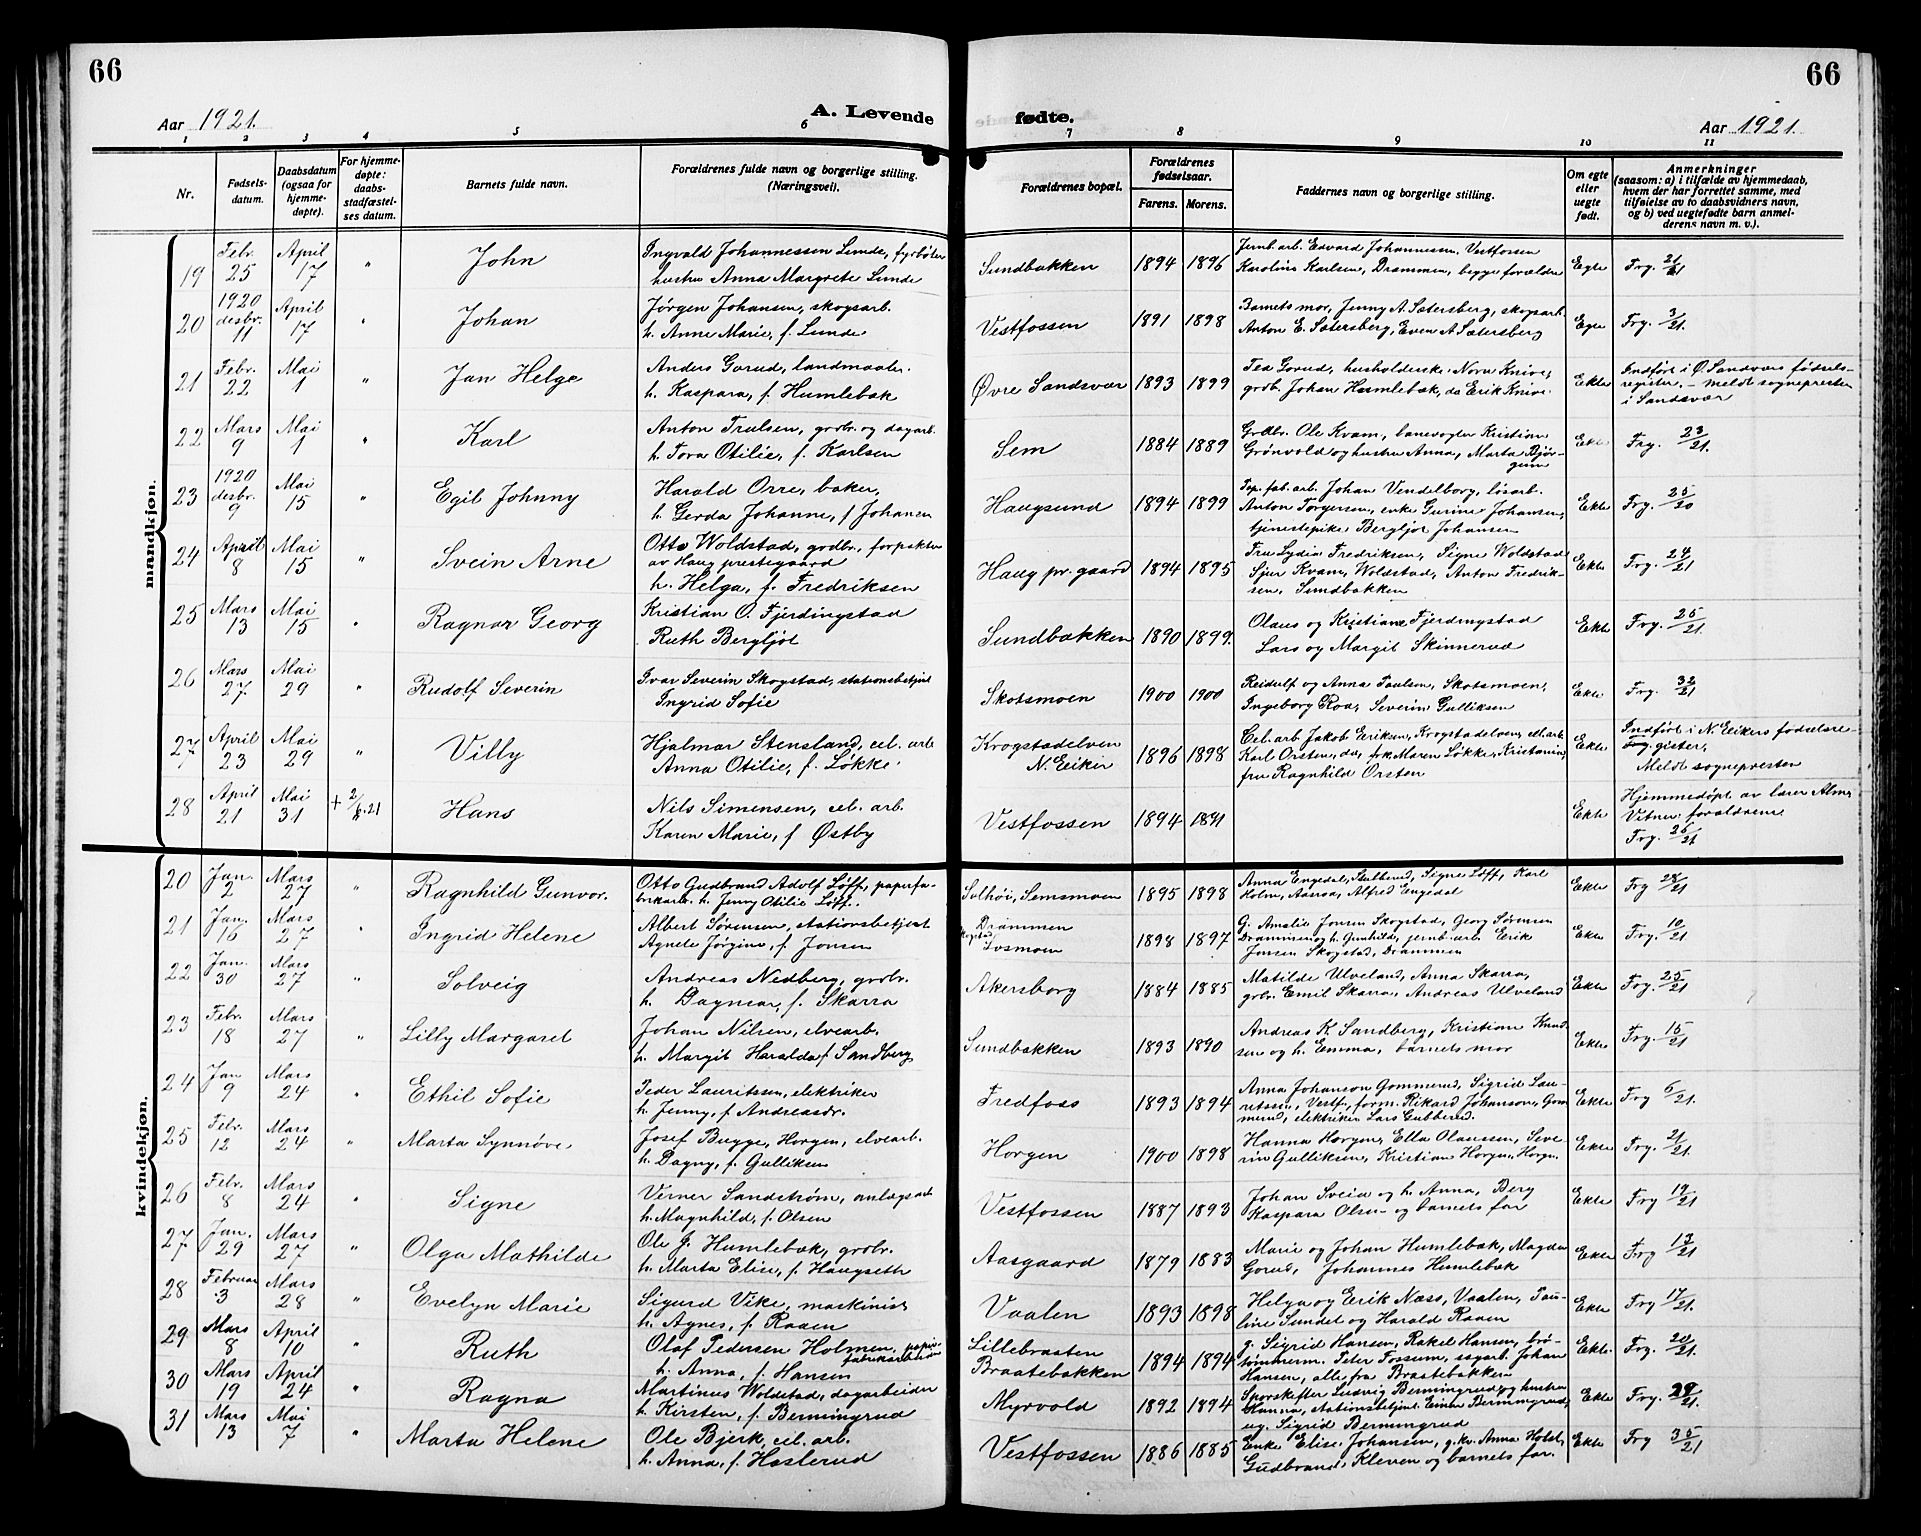 66
66
Aar 1921.
A. Levende
fødte.
Aar 1921.
1 2 3 4 5 6 7 8 9 10 11
Nr.
Fødsels-
datum.
Daabsdatum
(ogsaa for
hjemme-
døpte).
For hjemme-
døpte:
daabs-
stadfæstel-
ses datum.
Barnets fulde navn.
Forældrenes fulde navn og borgerlige stilling.
(Næringsvei).
Forældrenes bopæl.
Forældrenes
fødselsaar.
Farens. Morens.
Faddernes navn og borgerlige stilling.
Om egte
eller
uegte
født.
Anmerkninger
(saasom: a) i tilfælde av hjemmedaab,
hvem der har forrettet samme, med
tilføielse av to daabsvidners navn,
og b) ved uegtefødte barn anmel-
derens navn m. v.).
mandkjøn.
19 Febr. 25 April 17 " John
Ingvald Johannessen Lunde, fyrbøter
hustru Anna Margrete Lunde
Sundbakken 1894 1896
Jernb. arb. Edvard Johannessen, Vestfossen
Karoline Karlsen, Drammen, begge forældre
Egte Frg. 21/21
20 1920 desbr. 11 April 17 " Johan
Jørgen Johansen, skogsarb.
h. Anne Marie, f. Lunde
Vestfossen 1891 1898
Barnets mor, Jenny A. Sætersberg, skogsarb.
Anton E. Sætersberg, Even A Sætersberg
Egte Frg. 3/21
21 Febr. 22 Mai 1 " Jan Helge
Anders Gorud, landmaaler.
h. Kaspara, f. Humlebæk
Øvre Sandsvær 1893 1899
Tea Gorud, husholderske Nora Knive,
grdb. Johan Humlebæk, do Erik Knive.
Ekte Indført i Ø. Sandsværs fødsels-
register, - meldt sognepresten
i Sandsvær
22 Mars 9 Mai 1 " Karl
Anton Trulsen, grdbr. og dagarb.
h. Tora Otilie, f. Karlsen
Sem 1884 1889
Grdbr. Ole Kvam, banevogter Kristian
Grønvold og hustru Anna, Marta Bjør-
gum
Ekte Frg. 23/21.
23 1920 desbr. 9 Mai 15 " Egil Johnny
Harald Orre, baker,
h. Gerda Johanne, f Johansen
Haugsund 1894 1899
Pap. fab. arb. Johan Vendelborg, løsarb.
Anton Torgersen, enke Gurine Johansen,
tjenestepike Bergljot Johansen
Ekte Frg. 25/20
24 April 8 Mai 15 " Svein Arne
Otto Woldstad, grdbr., forpakter
av Haug prestegaard
h. Helga, f. Fredriksen
Haug pr. gaard 1894 1895
Fru Lydia Fredriksen, Signe Woldstad
Sjur Kvam, Woldstad, Anton Fredrik-
sen, Sundbakken
Ekte Frg. 24/21
25 Mars 13 Mai 15 " Ragnar Georg
Kristian O. Fjerdingstad
Ruth Bergljot
Sundbakken 1890 1899.
Olaus og Kristiane Fjerdingstad
Lars og Margit Skinnerud
Ekte Frg. 25/21.
26 Mars 27 Mai 29 " Rudolf Severin
Ivar Severin Skogstad, stationsbetjent
Ingrid Sofie
Skotsmoen 1900 1900
Reidulf og Anna Paulsen, Skotsmoen,
Ingeborg Roa, Severin Gulliksen
Ekte Frg. 32/21
27 April 23 Mai 29 " Villy
Hjalmar Stensland, cel. arb
Anna Otilie, f. Løkke.
Krogstadelven
N. Eiker 1896 1898
Cel. arb Jakob Eriksen, Krogstadelven, cel. arb
Karl Orsten, do, frk Maren Løkke, Kristiania,
fru Ragnhild Orsten
Ekte Indført i N. Eikers fødselsre-
gister,
Meldt sognepresten
28 April 21 Mai 31 + 2/6.21 Hans
Nils Simensen, cel. arb.
Karen Marie, f Østby
Vestfossen 1894 1891
Ekte Hjemmedøpt av lærer Alme
Vitner forældrene
Frg. 26/21
kvindekjøn.
20 Jan. 2 Mars 27 " Ragnhild Gunvor.
Otto Gudbrand Adolf Løff, paperfa-
brikarb. h. Jenny Otilie Løff.
Solhøi, Semsmoen 1895 1898
Anna Engedal, Stulterud, Signe Løff, Karl
Holm, Aasroa, Alfred Engedal
Ekte Frg 28/21
21 Jan. 16 Mars 27 " Ingrid Helene
Albert Sørensen, stationsbetjent
Agnete Jørgine, f. Jonsen
Drammen
1898 1897
G. Amalie Jonsen Skogstad, Georg Sørensen
Drammen og h. Gunhild, jernb. arb Erik
Jonsen Skogstad, Drammen
Ekte Frg. 10/21
22 Jan. 30 Mars 27 " Solveig
Andreas Nedberg, grdbr.
h. Dagmar, f. Skarra
Akersborg 1884 1885
Matilde Ulveland, Anna Skarra,
grbr. Emil Skarra, Andreas Ulveland
Ekte Frg. 25/21
23 Febr. 18 Mars 27 " Lilly Margaret
Johan Nilsen, elvearb.
h. Margit Haralda f. Sandberg
Sundbakken 1893 1890
Andreas K. Sandberg, Kristian Knud-
sen og h. Emma, barnets mor
Ekte Frg. 15/21
24 Jan 9 Mars 24 " Ethil Sofie
Peder Lauritssen, elektriker
h. Jenny, f. Andreasdr.
Fredfoss 1893 1894
Anna Johanson Gommerud, Sigrid Lau-
ritssen, Vestf., form. Rikard Johanson, Gom
merud, elektriker Lars Gubberud.
Ekte Frg 6/21.
25 Febr. 12 Mars 24 " Marta Synnøve
Josef Bugge, Horgen, elvearb.
h. Dagny, f. Gulliksen
Horgen 1900 1898
Hanna Horgen, Ella Olaussen, Seve-
rin Gulliksen, Kristian Horgen, Horgen.
Ekte Frg. 21/21.
26 Febr. 8 Mars 24 " Signe
Verner Sandstrøm, anlægsarb
h. Magnhild, f. Olsen
Vestfossen 1887 1893
Johan Sveia og h. Anna, Berg
Kaspara Olsen og barnets far
Ekte Frg 19/21
27 Jan. 29 Mars 27 " Olga Mathilde
Ole J. Humlebæk, grdbr.
h. Marta Elise, f. Haugseth
Aasgaard 1879 1883
Marie og Johan Humlebæk, Magda
Gorud, Johannes Humlebæk
Ekte Frg 13/21
28 Februar 3 Mars 28 " Evelyn Marie
Sigurd Vike, maskinist
h. Agnes, f. Raaen
Vaalen 1893 1898
Helga og Erik Næss, Vaalen, Pau-
line Sundet og Harald Raaen
Ekte Frg 17/21.
29. Mars 8 April 10 " Ruth
Olaf Pedersen Holmen, papir-
fabrikarbeider
h. Anna, f. Hansen
Lillebraaten
Braatebakken 1894 1894
g. Sigrid Hansen, Rakel Hansen, brø-
tømmerm. Peter Fossum, sagarb. Johan
Hansen, alle fra Braatebakken
Ekte. Frg. 20/21.
30 Mars 19 April 24 " Ragna
Martinus Woldstad, dagarbeider
h. Kirsten, f. Bermingrud
Myrvold 1892 1894
Sporskifter Ludvig Bermingrud og hustru
Hanna, stationsbetjent Einar Bermingrud,
ug. Sigrid Bermingrud
Ekte Frg. 29/21.
31 Mars 13 Mai 7 " Marta Helene
Ole Bjerk, cel. arb.
h. Anna, f. Haslerud
Vestfossen 1886 1885
Enke Elise Johansen, g. kv. Anna Holst,
Gudbrand Kleven og barnets far.
Ekte Frg 35/21